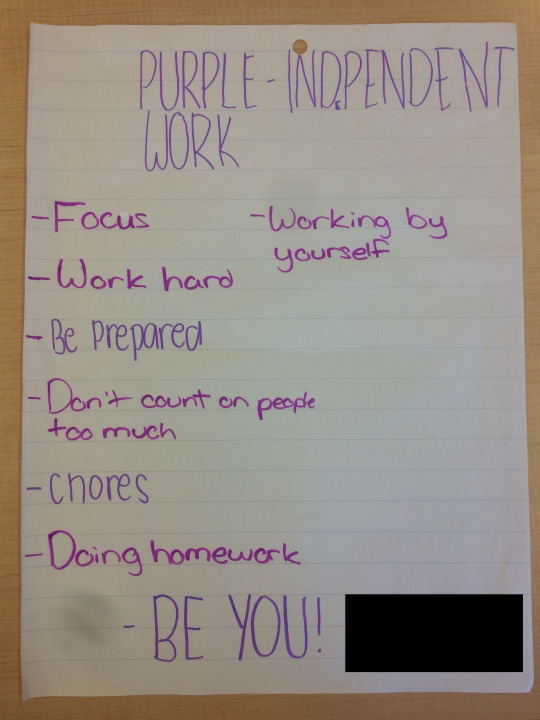 PURPLE - INDEPENDENT
WORK
- Focus
- Working by
yourself
- Work hard
- Be Prepared
- Don't count on people
too much
- chores
- Doing homework
- BE YOU!